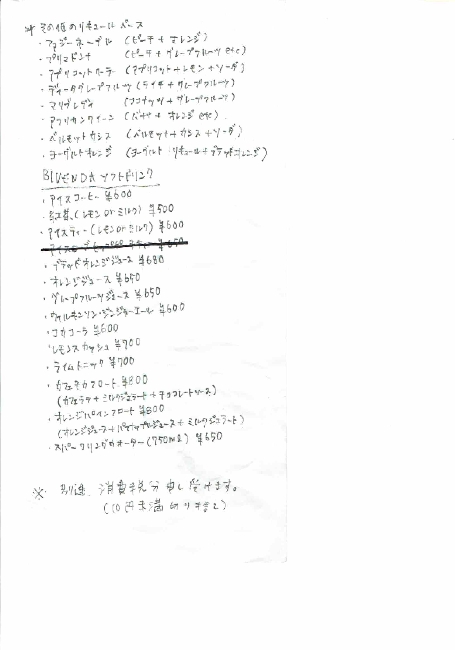 * その他のリキュールベース
・ファジーネーブル (ピーチ+オレンジ)
・プリマドンナ (ピーチ+グレープフルーツ etc)
・アプリコットクーラー (アプリコット+レモン+ソーダ)
・ディータグレープフルーツ (ライチ+グレープフルーツ)
・マリブレディ (ココナッツ+グレープフルーツ)
・アフリカンクイーン (バナナ+オレンジ etc)
・ベルモットカシス (ベルモット+カシス+ソーダ)
・ヨーグルトオレンジ (ヨーグルトリキュール+ブラッドオレンジ)
ソフトドリンク
・アイスコーヒー ¥600
・紅茶 (レモン or ミルク) ¥500
・アイスティー (レモン or ミルク) ¥600
・ブラッドオレンジジュース ¥680
・オレンジジュース ¥650
・グレープフルーツジュース ¥650
・ウィルキンソン・ジンジャーエール ¥600
・コカコーラ ¥600
・レモンスカッシュ ¥700
・ライムトニック ¥700
・カフェモカフロート ¥800
(カフェラテ+ミルクジェラート+チョコレートソース)
・オレンジパインフロート ¥800
(オレンジジュース+パイナップルジュース+ミルクジェラート)
・スパークリングウォーター (750ml) ¥650
※ 別途、消費税分申し受けます。
(10円未満切り捨て)